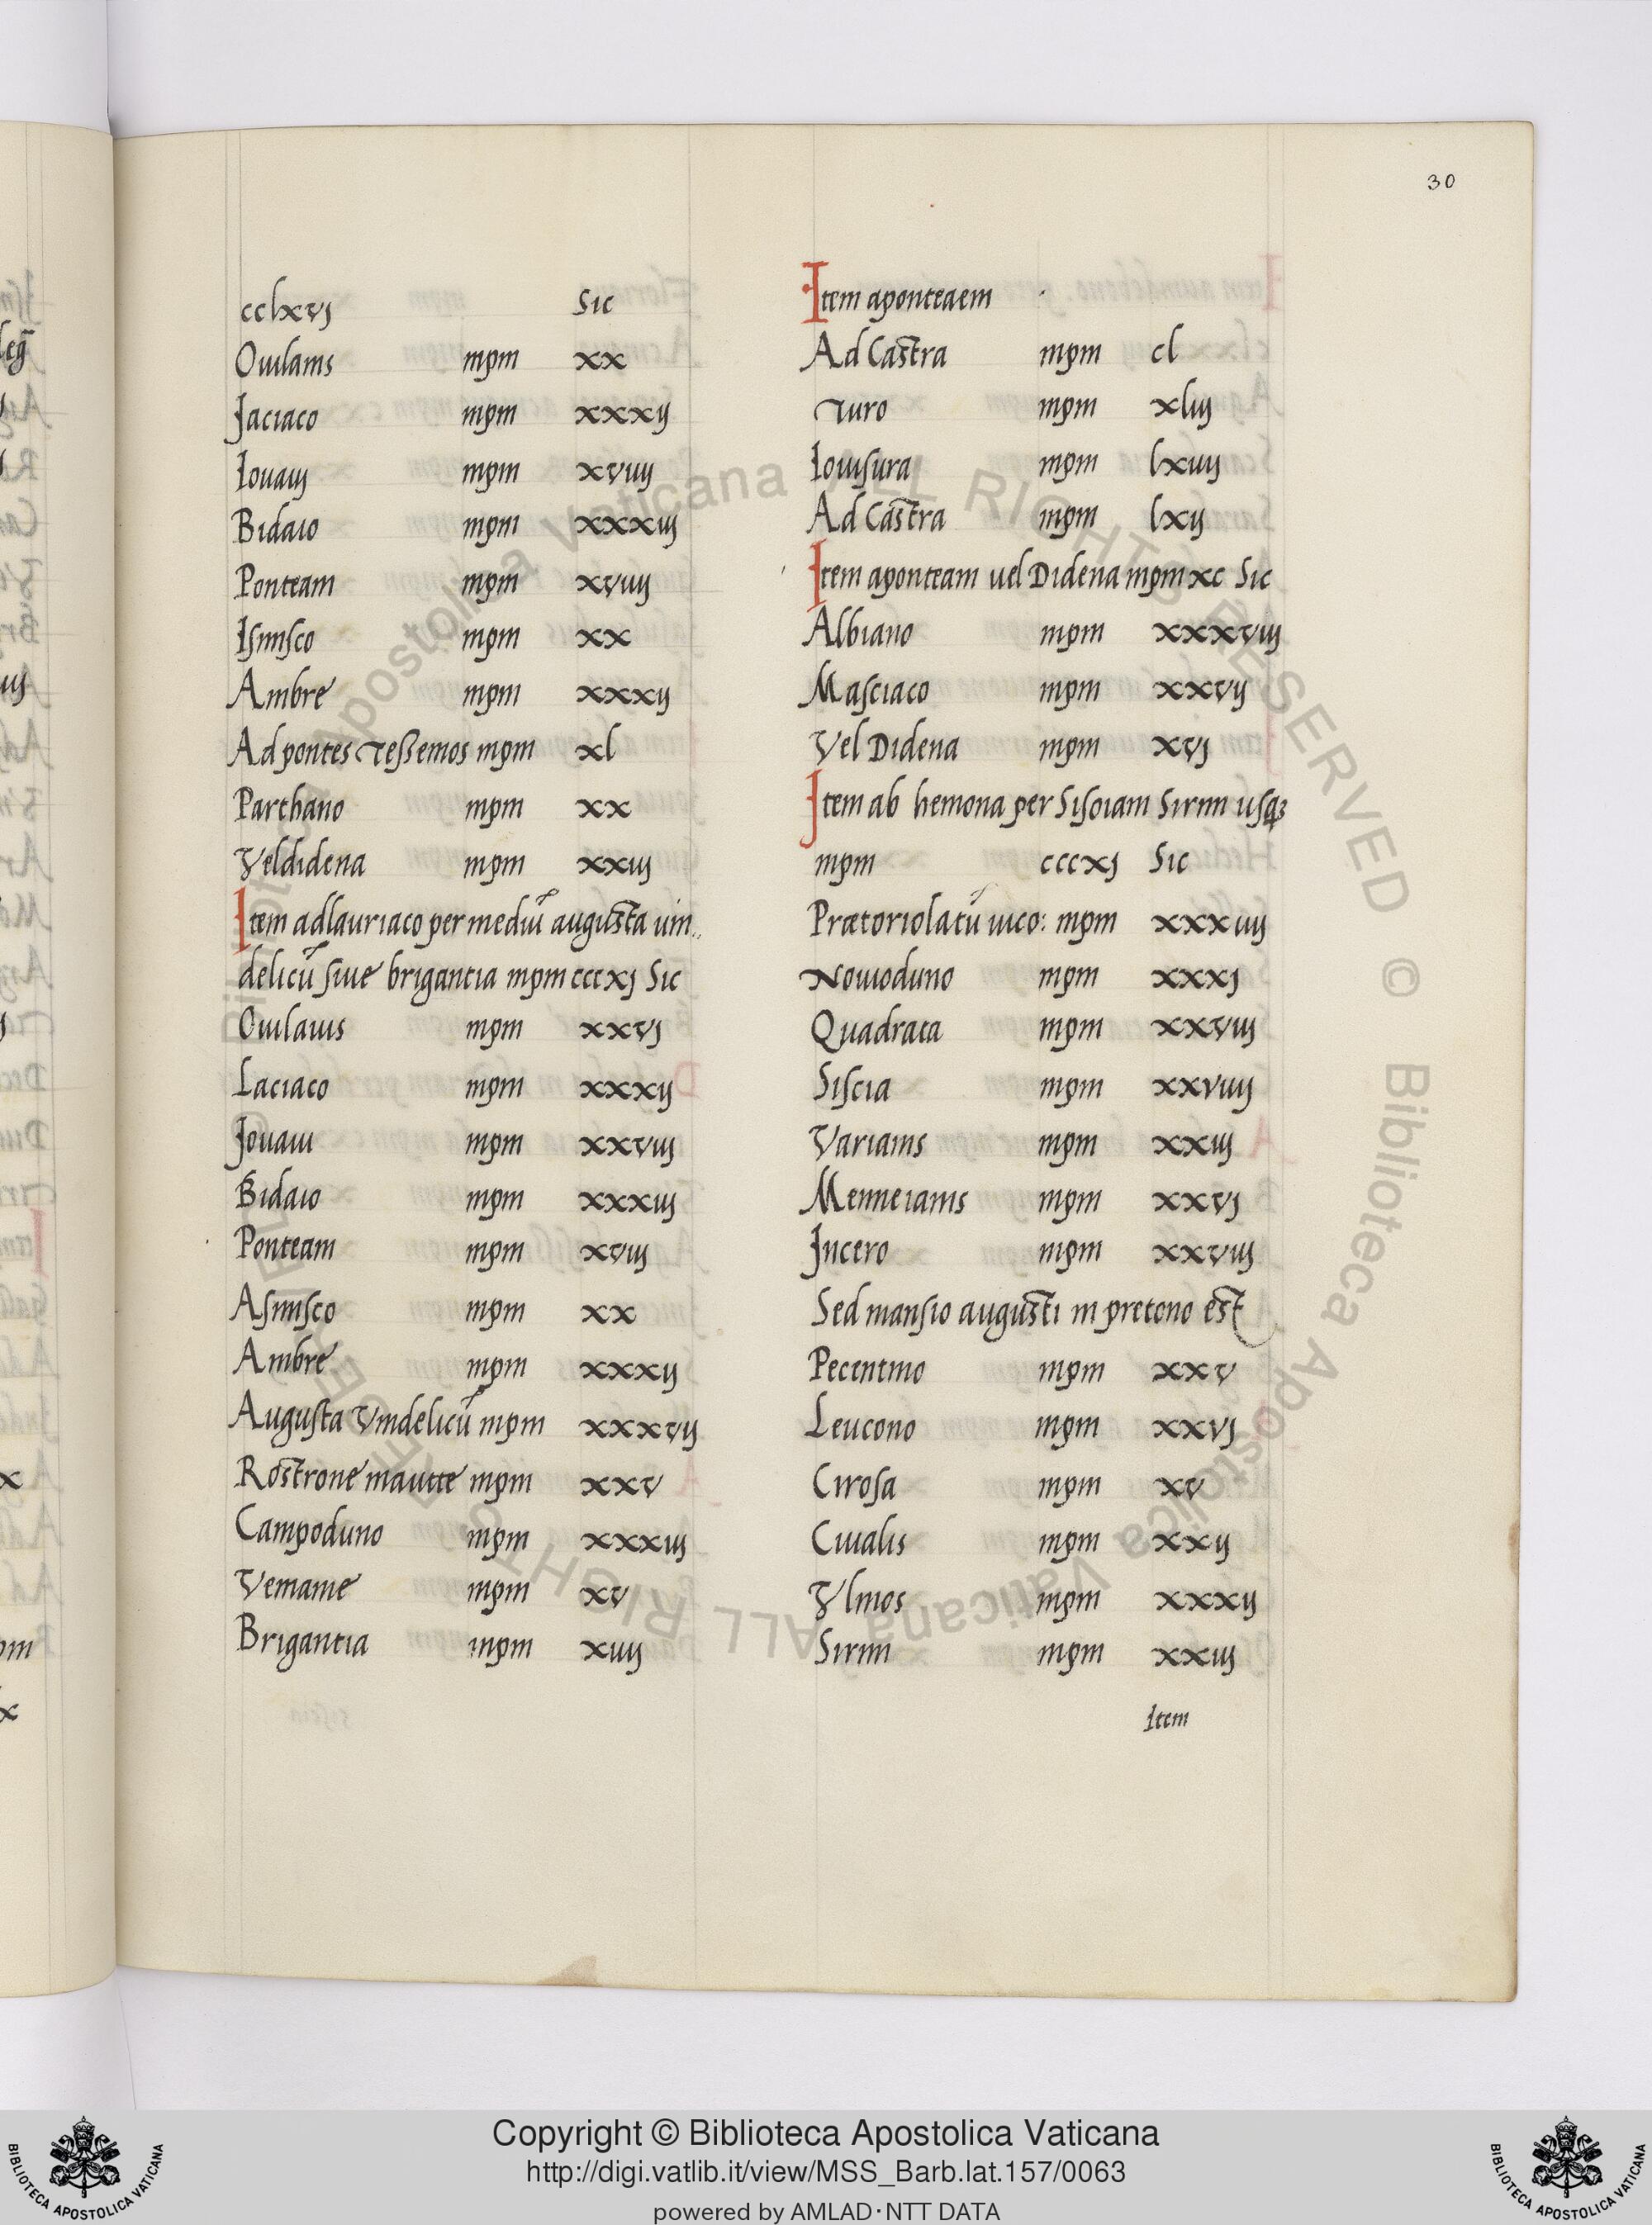 30
cclxvj Sic
Ouilams mpm xx
Jaciaco mpm xxxij
Iouaij mpm xviiij
Bidaio mpm xxxiij
Ponteam mpm xviiij
Isinisco mpm xx
Ambre mpm xxxij
Ad pontes Tessemos mpm xl
Parthano mpm xx
Veldidena mpm xxiij
Item adlauriaco per mediũ augusta uin..
delicũ siue brigantia mpm cccxj Sic
Ouilauis mpm xxvj
Laciaco mpm xxxij
Jouaui mpm xxviij
Bidaio mpm xxxiij
Ponteam mpm xviij
Asinisco mpm xx
Ambre mpm xxxij
Augusta Vindelicũ mpm xxxvij
Rostrone mauite mpm xxv
Campoduno mpm xxxiij
Vemanie mpm xv
Brigantia mpm xiiij
Item aponteaem
Ad Castra mpm cl
Turo mpm xliij
Iouisura mpm lxiiij
Ad Castra mpm lxij
Item aponteam uel Didena mpm xc Sic
Albiano mpm xxxviij
Masciaco mpm xxvij
Vel Didena mpm xvj
Item ab hemona per Sisoiam Sirmi usq3
mpm cccxj Sic
Prætoriolatũ uico: mpm xxxiiij
Nouioduno mpm xxxj
Quadrata mpm xxviij
Siscia mpm xxviiij
Varianis mpm xxiij
Menneianis mpm xxvj
Incero mpm xxviij
Sed mansio augusti in pretorio est
Pecentino mpm xxv
Leucono mpm xxvj
Cirosa mpm xv
Ciualis mpm xxij
Vlmos mpm xxxij
Sirmi mpm xxiij
Item
Copyright © Biblioteca Apostolica Vaticana
http://digi.vatlib.it/view/MSS_Barb.lat.157/0063
powered by AMLAD·NTT DATA